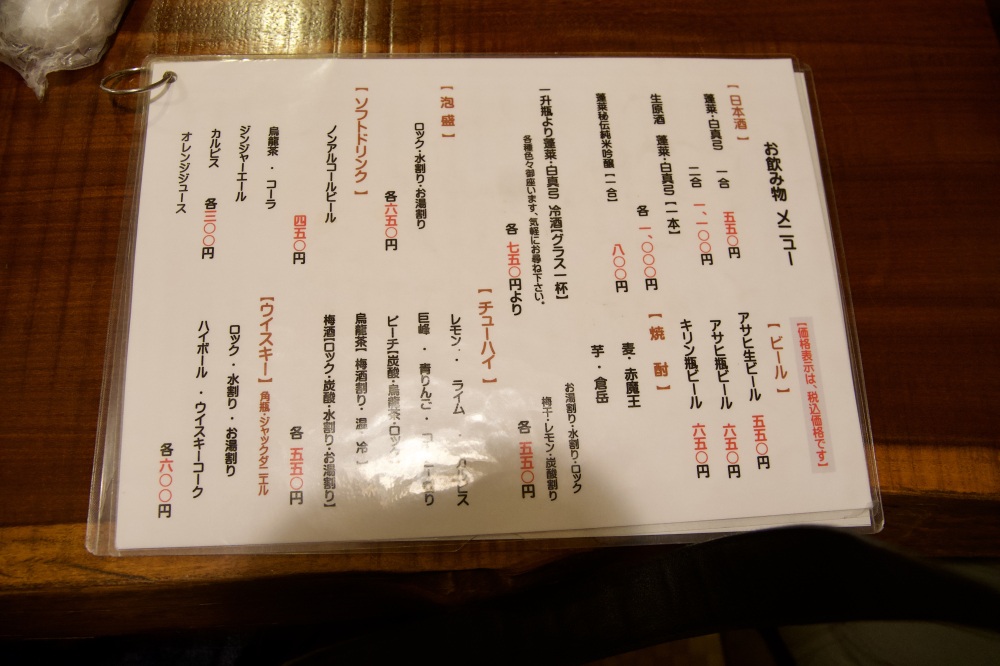 お飲み物 メニュー
【価格表示は、税込価格です】
【日本酒】
蓬莱・白真弓 一合 五五〇円
二合 一、一〇〇円
生原酒 蓬莱・白真弓【一本】
各 一、〇〇〇円
蓬莱秘伝純米吟醸【一合】 八〇〇円
一升瓶より蓬莱・白真弓 冷酒【グラス一杯】
各種色々御座います、気軽にお尋ね下さい。
各 七五〇円より
【泡盛】
ロック・水割り・お湯割り
各 六五〇円
【ソフトドリンク】
ノンアルコールビール
四五〇円
烏龍茶 ・ コーラ
ジンジャーエール
カルピス
オレンジジュース
各 三〇〇円
【ビール】
アサヒ生ビール 五五〇円
アサヒ瓶ビール 六五〇円
キリン瓶ビール 六五〇円
【焼 酎】
麦・赤魔王
芋・倉岳
お湯割り・水割り・ロック
梅干・レモン・炭酸割り
各 五五〇円
【チューハイ】
レモン・ ライム ・
巨峰 ・ 青りんご ・
ピーチ【炭酸・烏龍茶・ロック
烏龍茶【 梅酒割り・ 温 冷 】
梅酒【ロック・炭酸・水割り・お湯割り】
各 五五〇円
【ウイスキー】 角瓶・ジャックダニエル
ロック ・ 水割り ・ お湯割り
ハイボール ・ ウイスキーコーク
各 六〇〇円